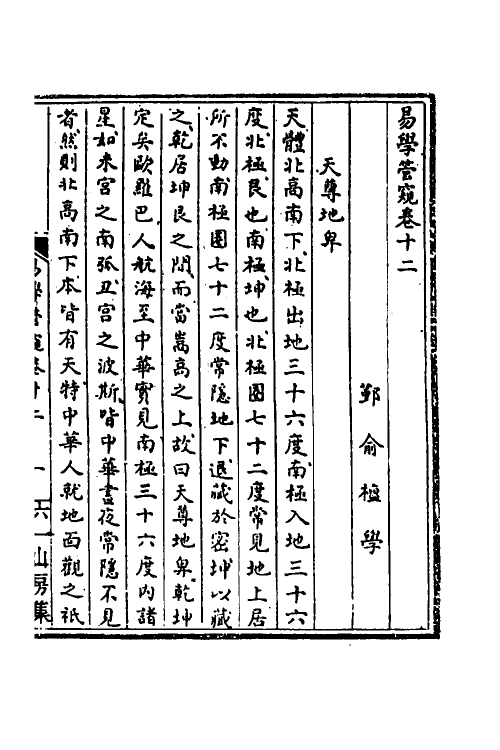 易學管窺卷十二
鄞俞檀學
天尊地卑
天體北高南下北極出地三十六度南極入地三十六
度北極艮也南極坤也北極圍七十二度常見地上居
所不動南極圍七十二度常隱地下退藏於密坤以藏
之乾居坤艮之間而當嵩高之上故曰天尊地卑乾坤
定矣歐羅巴人航海至中華實見南極三十六度內諸
星如未宮之南弧丑宮之波斯皆中華晝夜常隱不見
者然則北高南下本皆有天特中華人就地面觀之祇
易學管窺卷十二
一
六一山房集